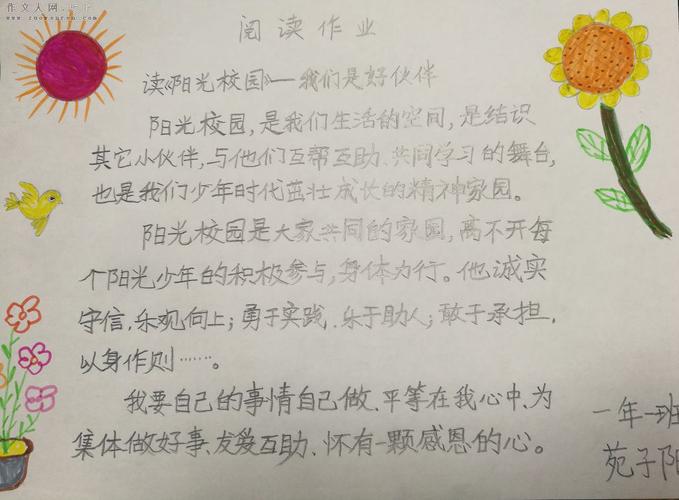 作文人网
www.zuowenren.com
阅读作业
读《阳光校园》—我们是好伙伴
阳光校园,是我们生活的空间,是结识
其它小伙伴,与他们互帮互助、共同学习的舞台,
也是我们少年时代茁壮成长的精神家园。
阳光校园是大家共同的家园,离不开每
个阳光少年的积极参与,身体力行。他诚实
守信,乐观向上;勇于实践、乐于助人;敢于承担,
以身作则……。
我要自己的事情自己做、平等在我心中、为
集体做好事、友爱互助、怀有一颗感恩的心。
一年一班
苑子阳